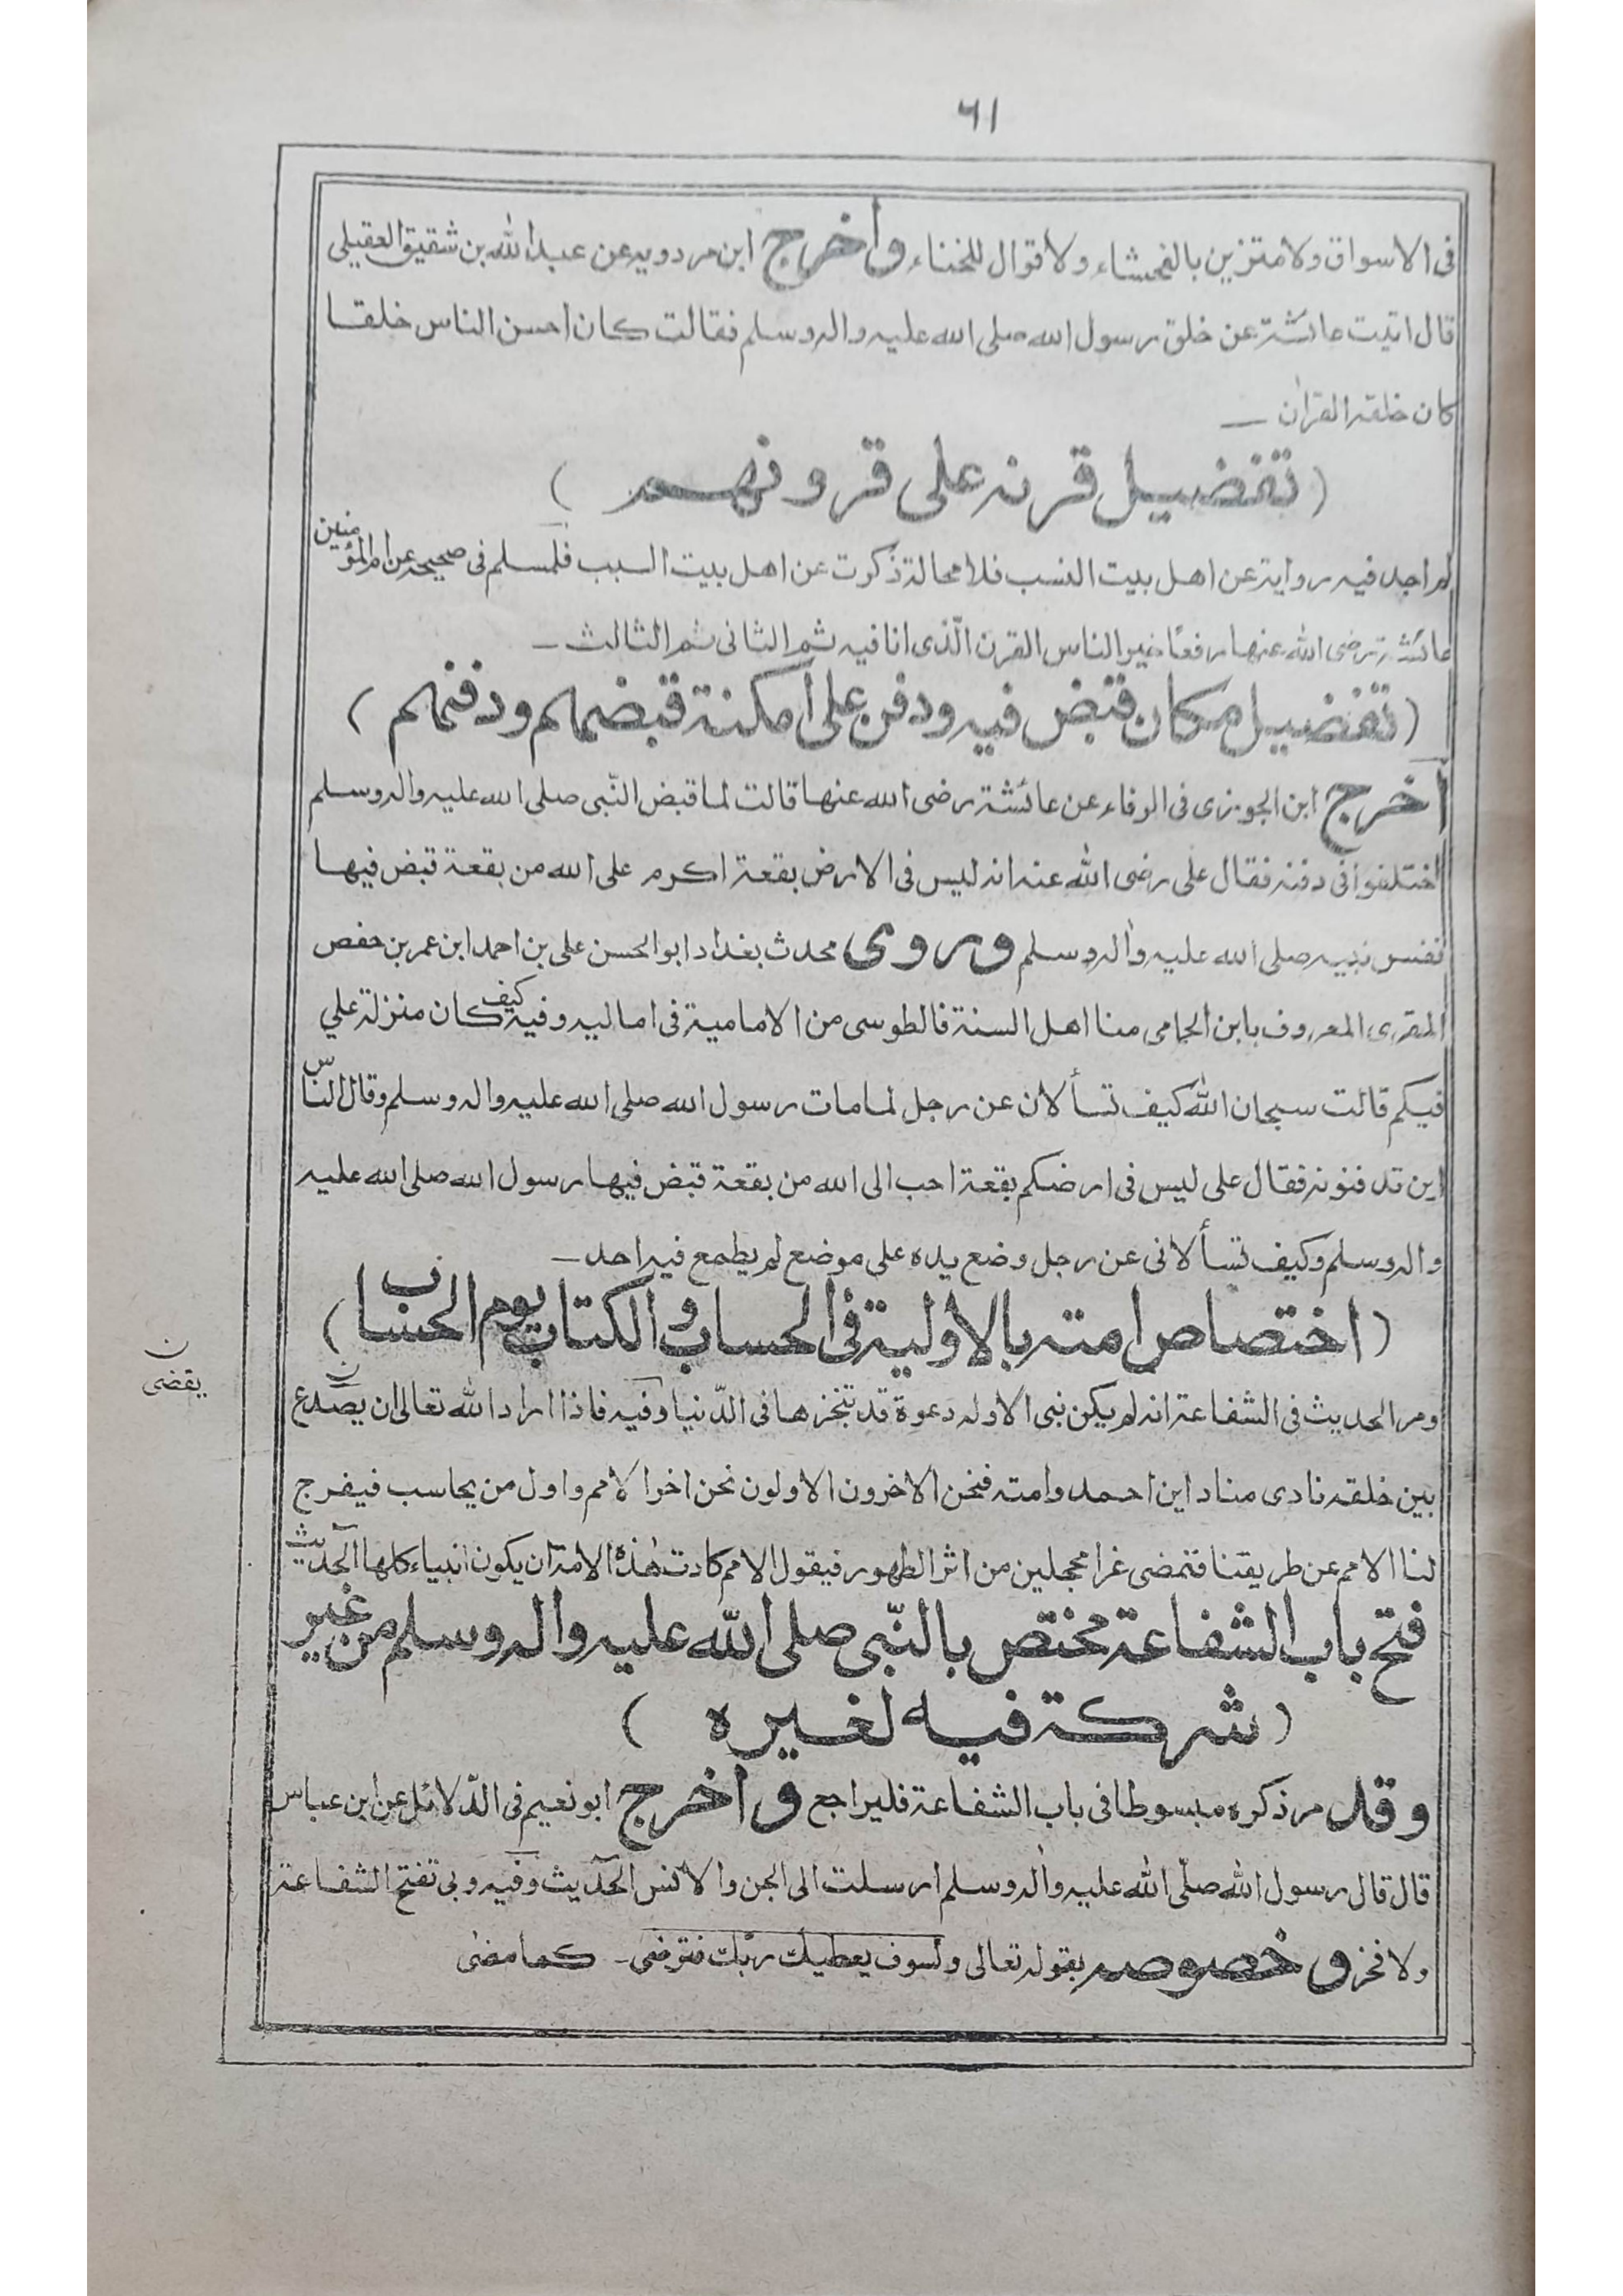 ٦١
فى الاسواق ولا متزين بالفحشاء ولا قوال للخناء واخرج ابن مردويه عن عبد الله بن شقيق العقيلى
قال اتيت عائشة عن خلق رسول الله صلى الله عليه واله وسلم فقالت كان احسن الناس خلقا
كان خلقه القران ــ
(تفضيل قرنه على قرونهم)
لم اجد فيه رواية عن اهل بيت النسب فلا محالة ذكرت عن اهل بيت السبب فلمسلم فى صحيحه عن ام المؤمنين
عائشة رضى الله عنها رفعًا خير الناس القرن الّذى انا فيه ثم الثانى ثم الثالث ــ
(تفضيل مكان قبض فيه ودفن على امكنة قبضهم ودفنهم)
اخرج ابن الجوزى فى الوفاء عن عائشة رضى الله عنها قالت لما قبض النّبى صلى الله عليه واله وسلم
اختلفوا فى دفنه فقال على رضى الله عنه انه ليس فى الارض بقعة اكرم على الله من بقعة قبض فيها
نفس نبيه صلى الله عليه واله وسلم وروى محدث بغداد ابو الحسن على بن احمد ابن عمر بن حفص
المقرى المعروف بابن الحمامى منا اهل السنة فالطوسى من الامامية فى اماليه وفيه كيف كان منزلة علي
فيكم قالت سبحان الله كيف تسألان عن رجل لما مات رسول الله صلى الله عليه واله وسلم وقال النّاس
اين تدفنونه فقال على ليس فى ارضكم بقعة احب الى الله من بقعة قبض فيها رسول الله صلى الله عليه
واله وسلم وكيف تسألانى عن رجل وضع يده على موضع لم يطمع فيه احد ــ
(اختصاص امته بالاولية فى الحساب و الكتاب يوم الحساب)
ومر الحديث فى الشفاعة انه لم يكن نبى الا وله دعوة قد تنجزها فى الدّنيا وفيه فاذا اراد الله تعالى ان يصدع
ن
يقضى
بين خلقه نادى مناد اين احمد وامته فنحن الاخرون الاولون نحن اخر الامم واول من يحاسب فيفرج
لنا الامم عن طريقنا فتمضى غرا محجلين من اثر الطهور فيقول الامم كادت هٰذه الامة ان يكون انبياء كلها الحديث
فتح باب الشفاعة مختص بالنّبى صلى الله عليه واله وسلم من غير
(شركة فيه لغيره)
وقد مر ذكره مبسوطا فى باب الشفاعة فليراجع واخرج ابو نعيم فى الدّلائل عن ابن عباس
قال قال رسول الله صلّى الله عليه واله وسلم ارسلت الى الجن والانس الحديث وفيه وبى تفتح الشفاعة
ولا فخر وخصوصه بقوله تعالى ولسوف يعطيك ربّك فترضى ــ كما مضى